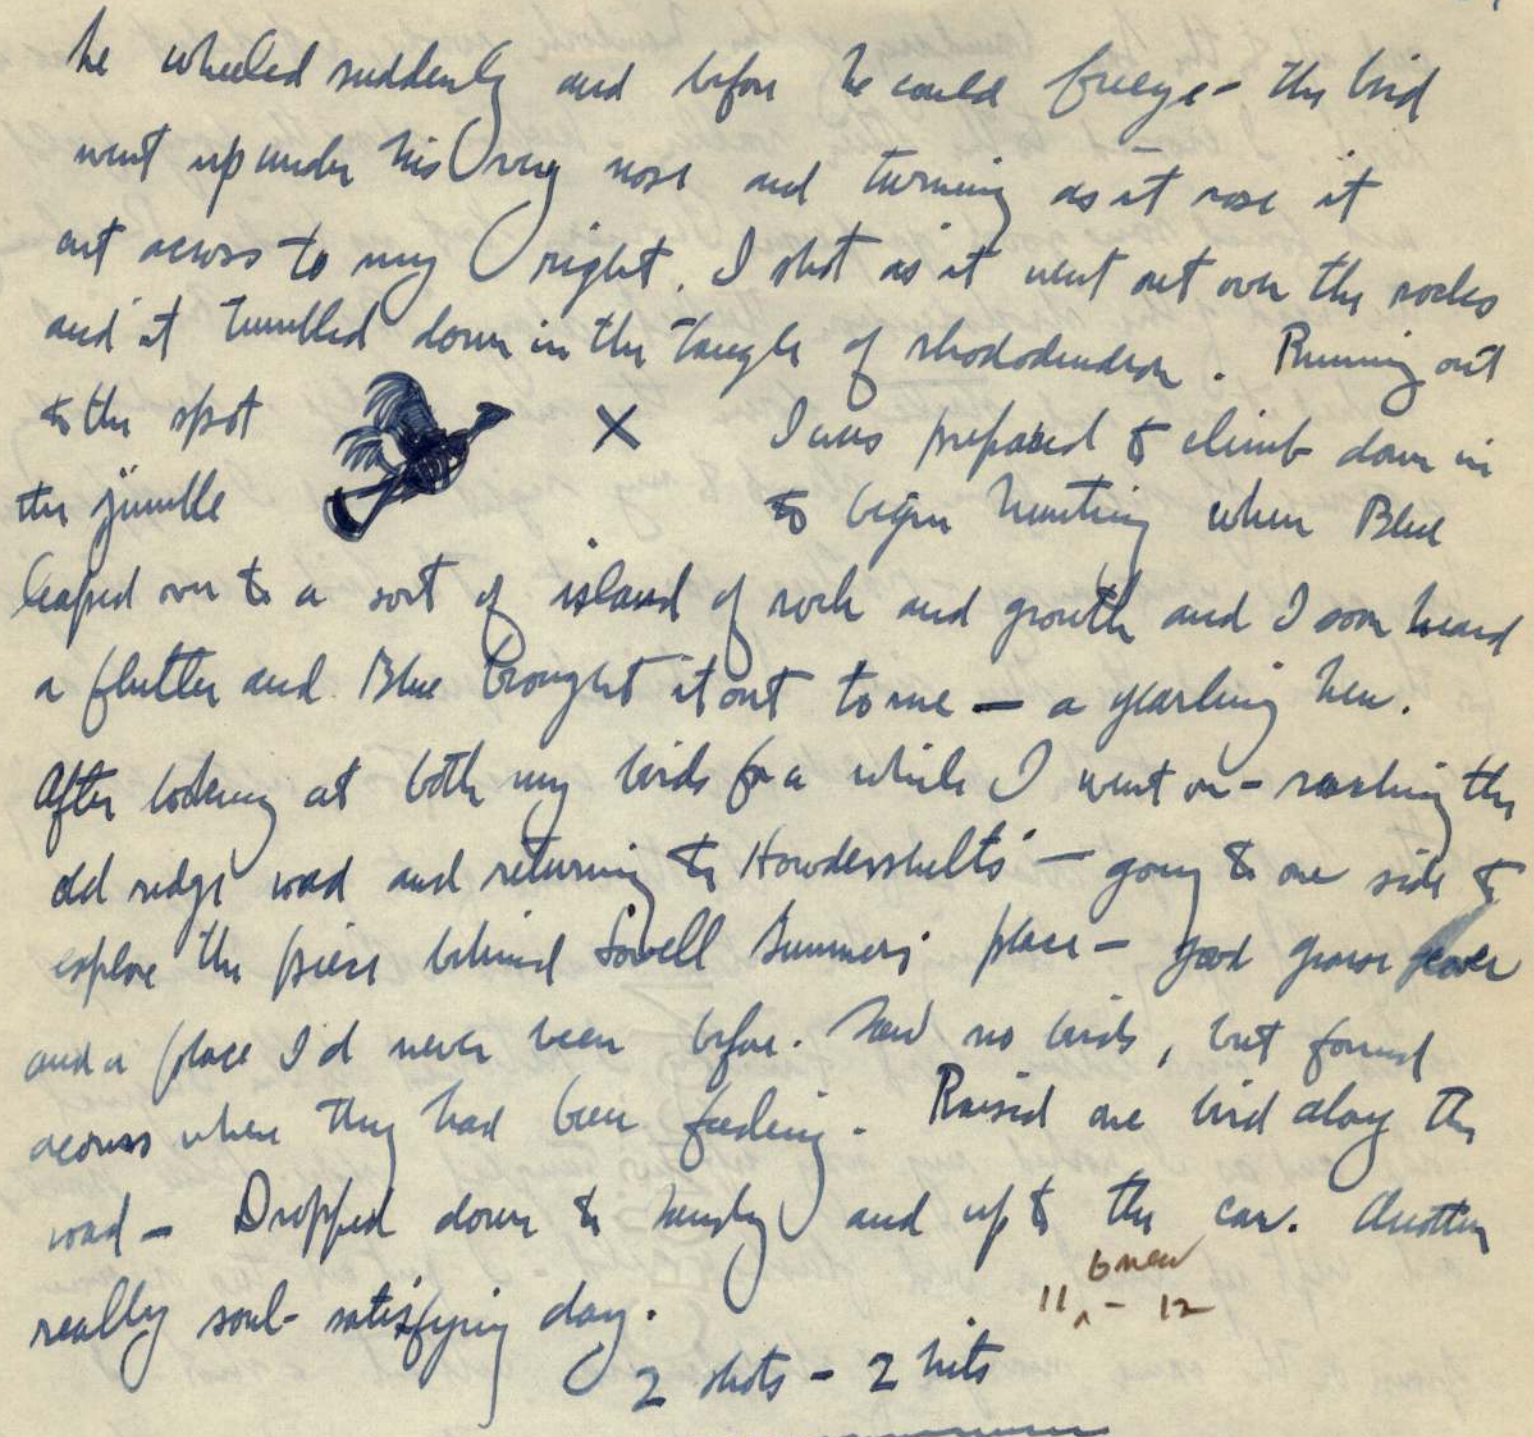 he wheeled suddenly and before he could freeze - the bird
went up under his very nose and turning as it rose it
cut across to my right. I shot as it went out over the rocks
and it tumbled down in the tangle of rhododendron. Running out
to the spot X I was prepared to climb down in
the jumble to begin hunting when Blue
leaped over to a sort of island of rock and growth and I soon heard
a flutter and Blue brought it out to me — a yearling hen.
After looking at both my birds for a while I went on - reaching the
old ridge road and returning to Howdershelts' — going to one side to
explore the piece behind Lowell Summers' place - good grouse cover
and a place I'd never been before. Saw no birds, but found
acorns where they had been feeding. Raised one bird along the
road - Dropped down to and up to the car. Another
really soul-satisfying day.
6 new
11 ^ - 12
2 shots - 2 hits